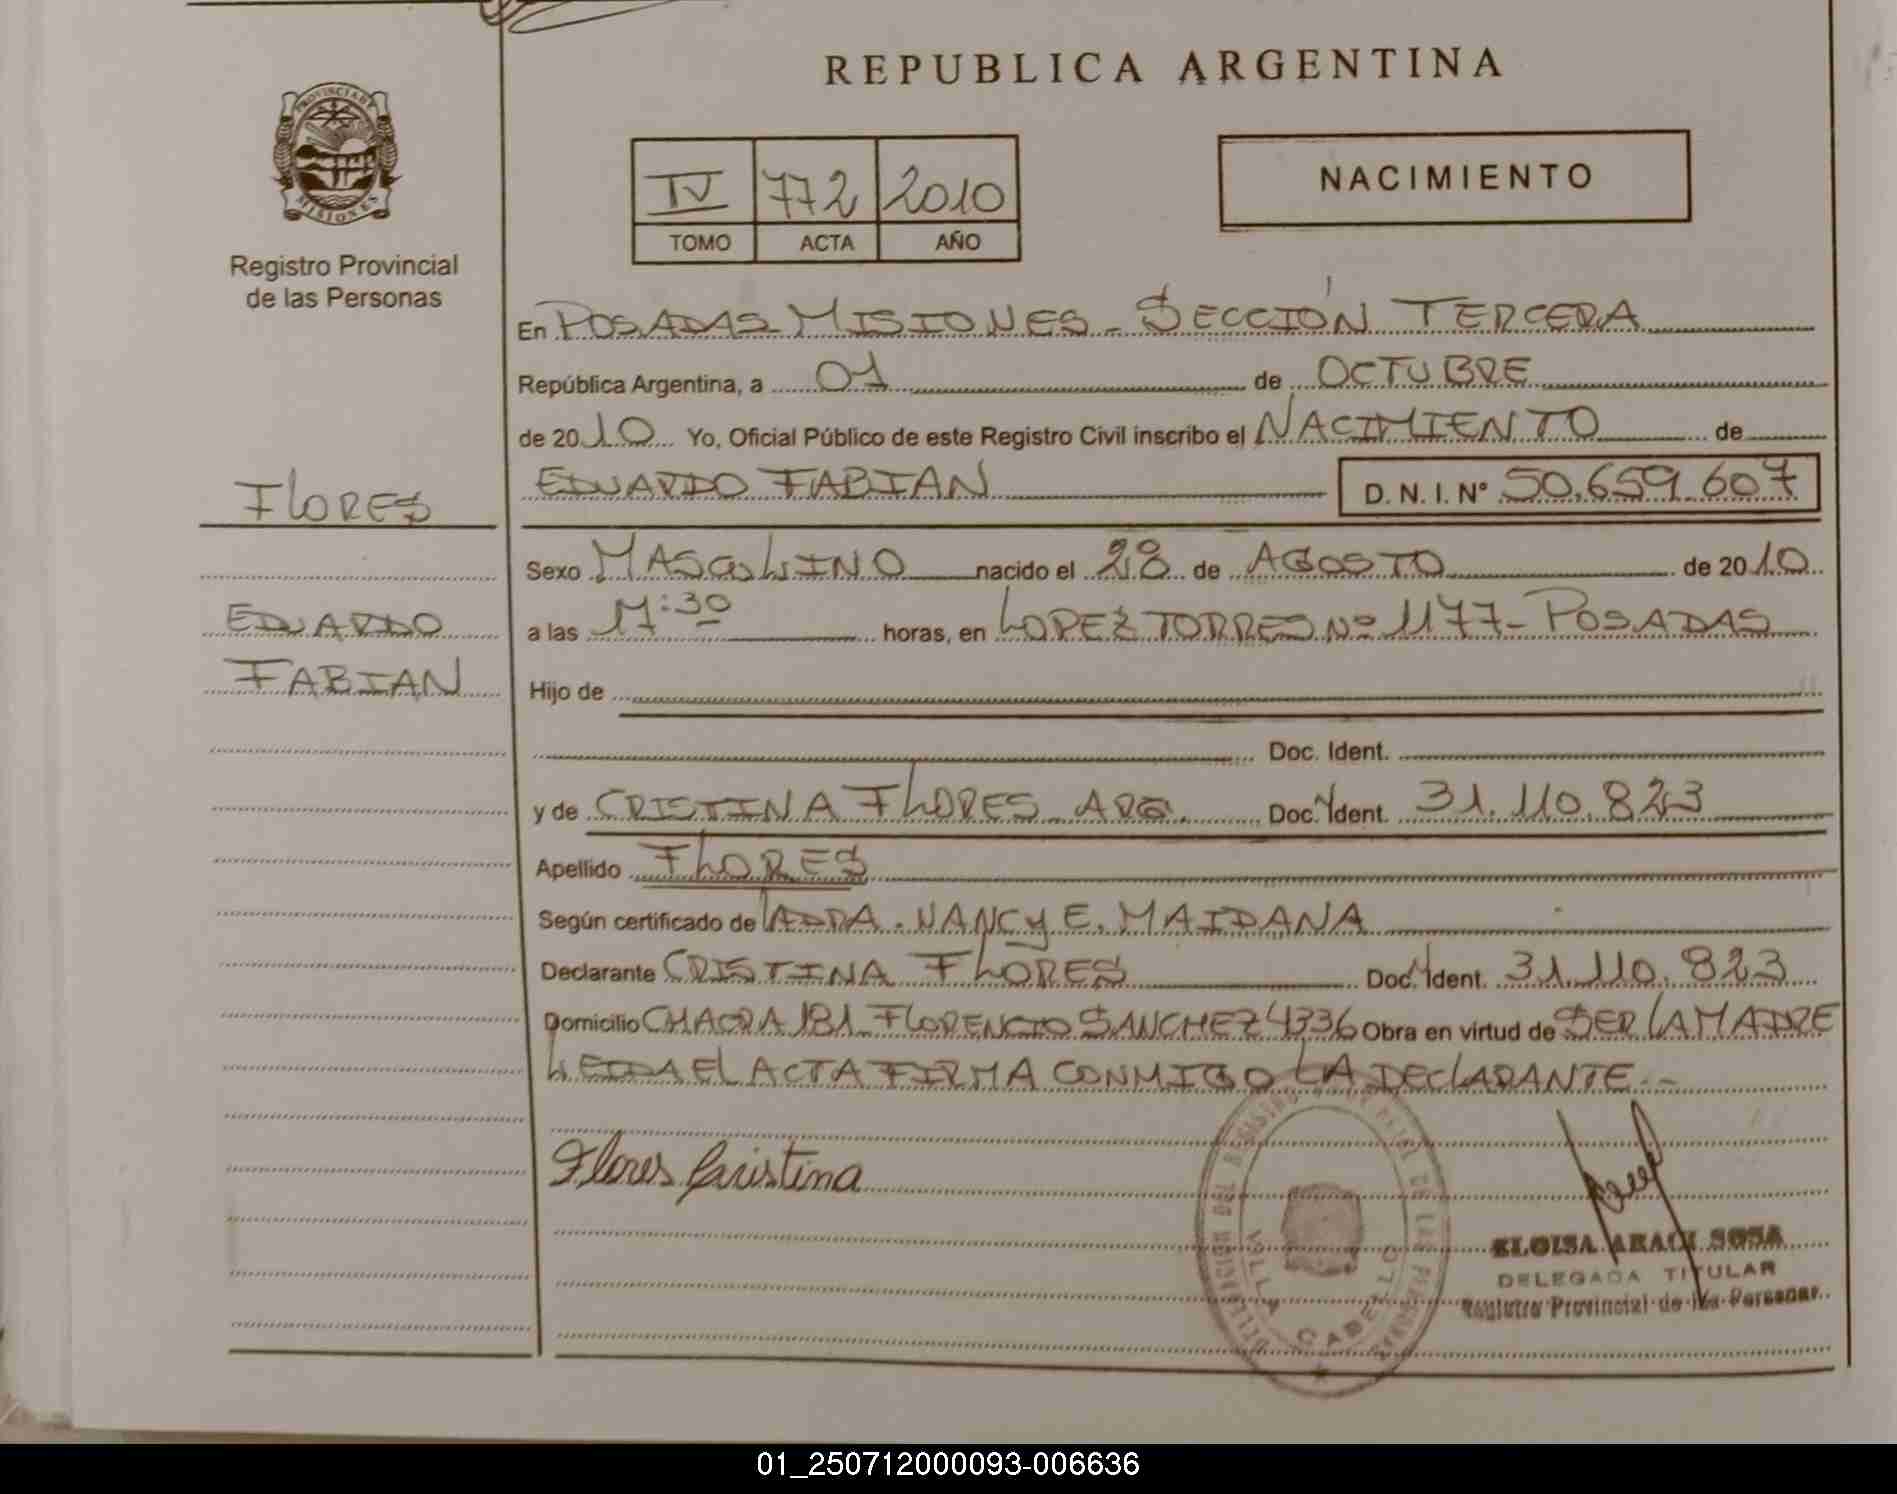 REPUBLICA ARGENTINA
PROVINCIA DE
MISIONES
Registro Provincial
de las Personas
IV 772 2010
TOMO ACTA AÑO
NACIMIENTO
En POSADAS MISIONES - SECCIÓN TERCERA
República Argentina, a 01 de OCTUBRE
de 2010 Yo, Oficial Público de este Registro Civil inscribo el NACIMIENTO de
EDUARDO FABIAN D. N. I. N° 50.659.607
FLORES
EDUARDO
FABIAN
Sexo MASCULINO nacido el 28 de AGOSTO de 2010
a las 17:30 horas, en LOPEZ TORRES Nº 1177 - POSADAS
Hijo de
Doc. Ident.
y de CRISTINA FLORES - ARG. Doc. Ident. 31.110.823
Apellido FLORES
Según certificado de LA DRA. NANCY E. MAIDANA
Declarante CRISTINA FLORES Doc. Ident. 31.110.823
Domicilio CHACRA 181 FLORENCIO SANCHEZ 4336 Obra en virtud de SER LA MADRE
LEIDA EL ACTA FIRMA CONMIGO LA DECLARANTE--
Flores Cristina
VILLA CABELLO
ELOISA ARACI SOSA
DELEGADA TITULAR
Registro Provincial de las Personas
01_250712000093-006636